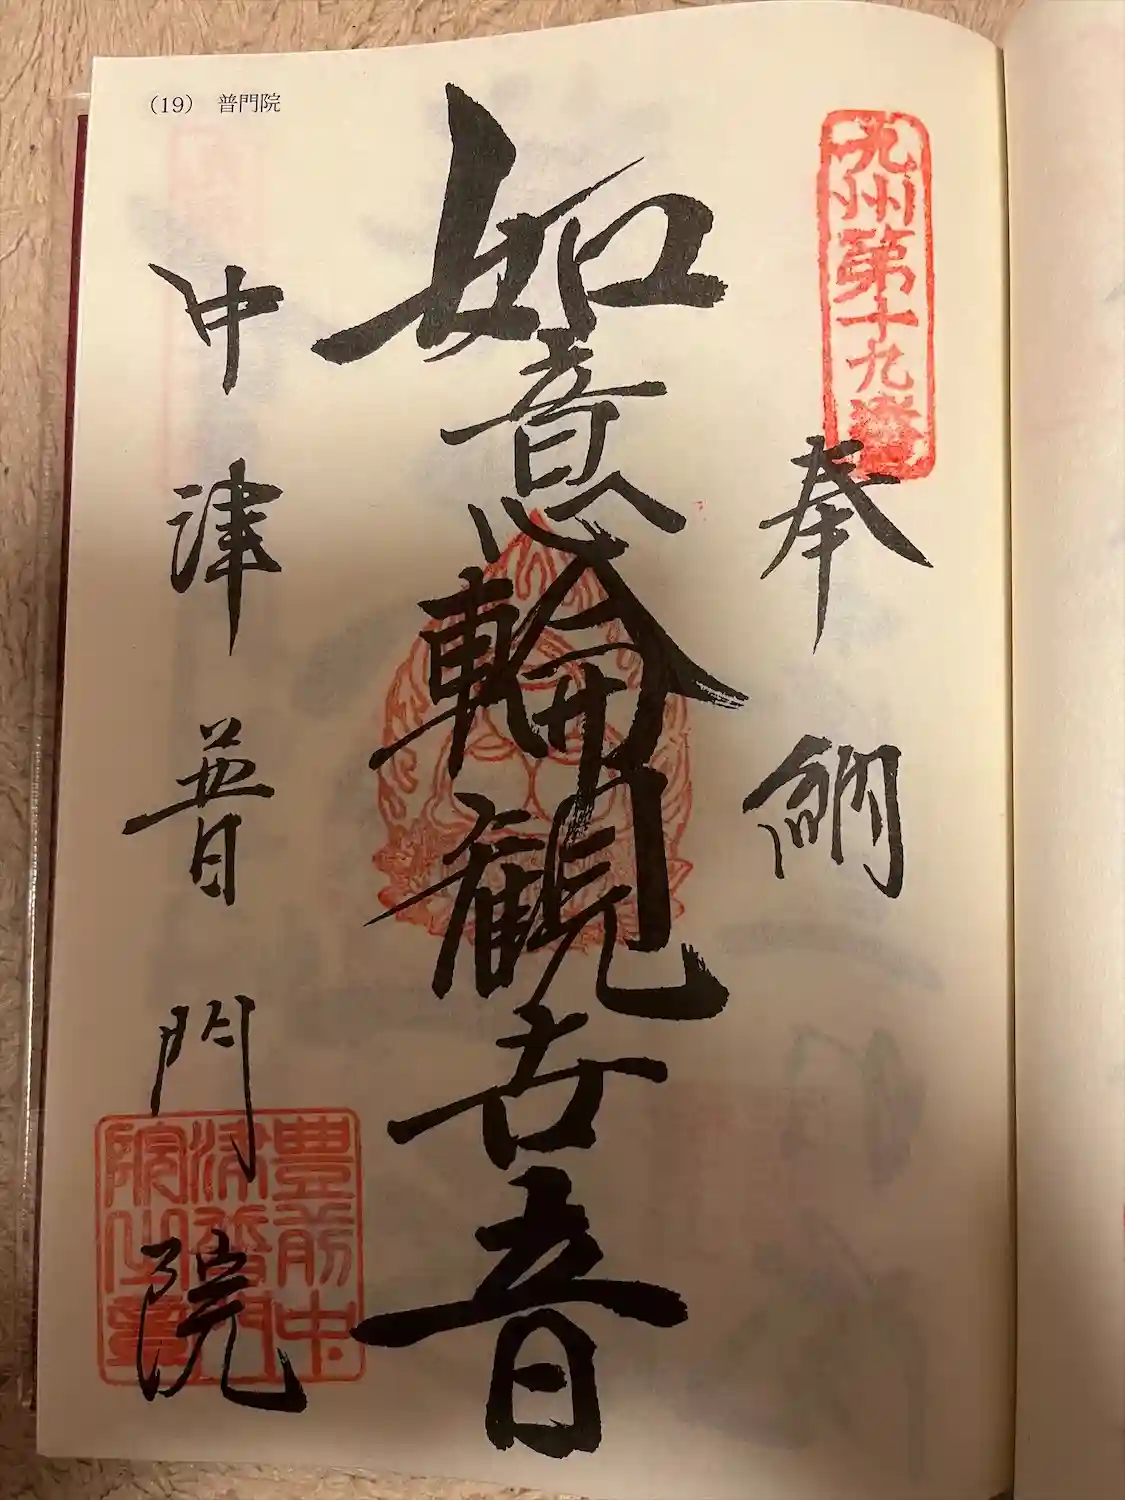 (19) 普門院
九州第十九番
奉納
如意輪観世音
中津普門院
豊前中
津普門
院之章